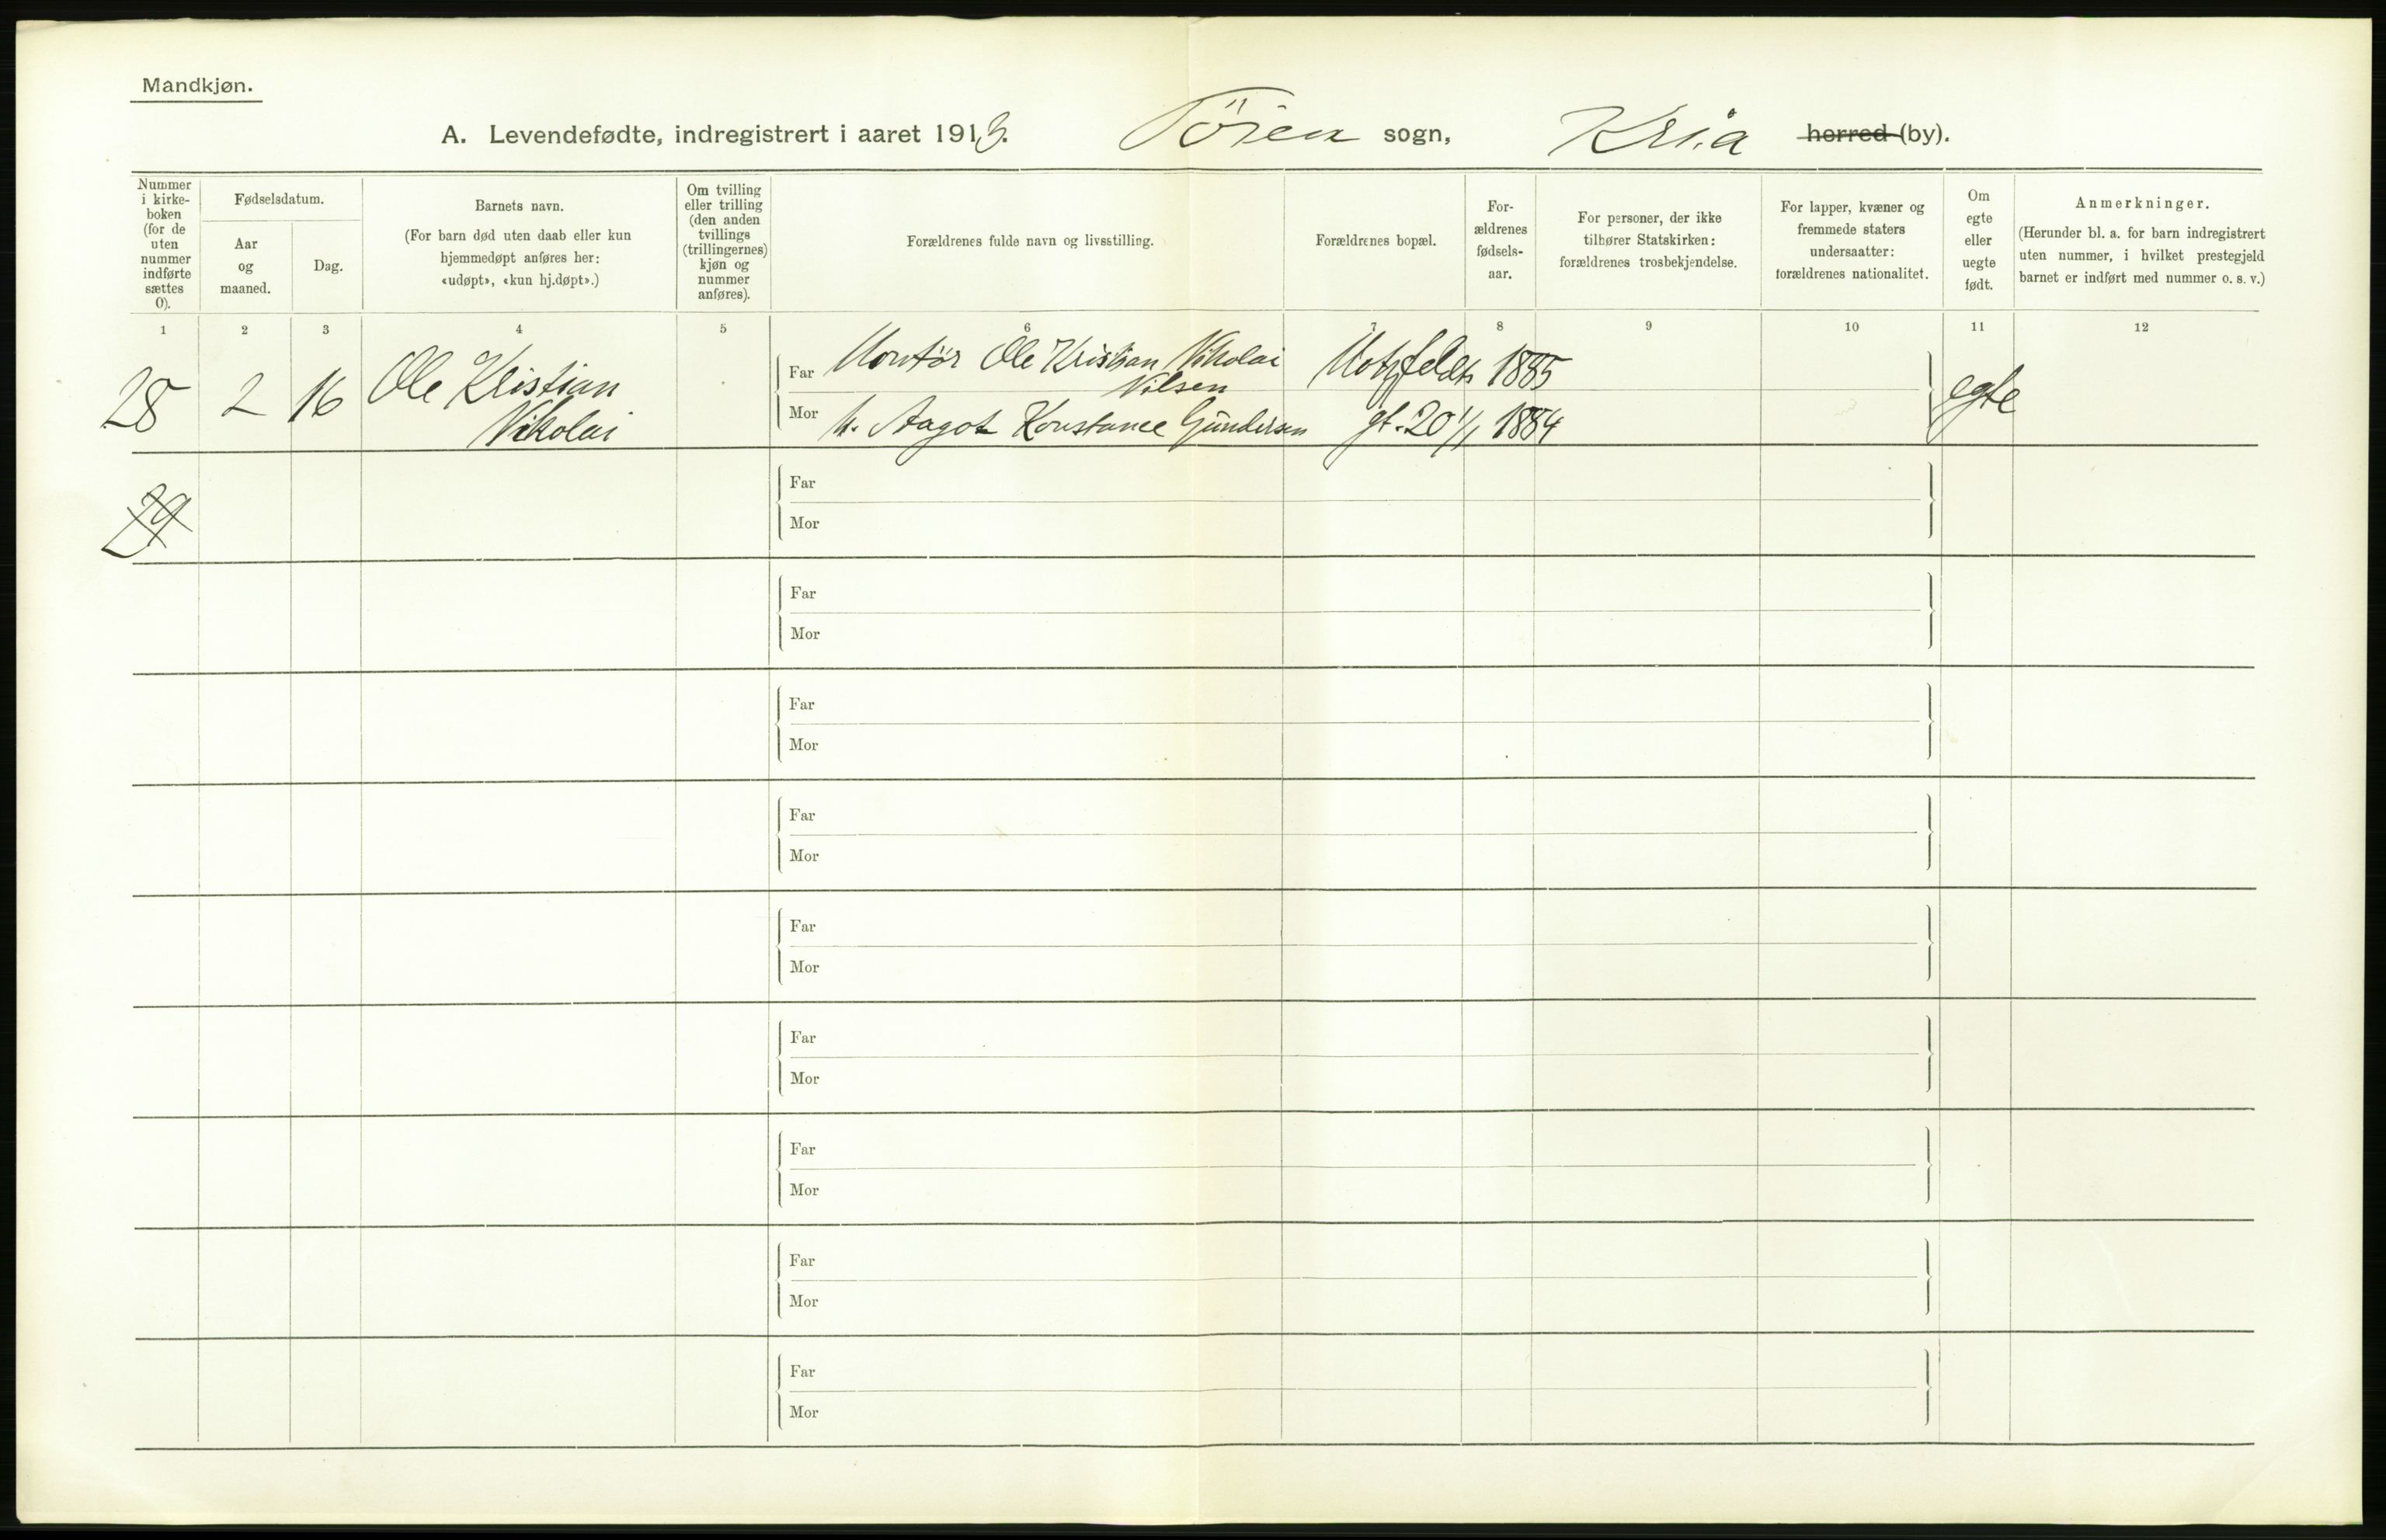 Mandkjøn.
A. Levendefødte, indregistrert i aaret 1913. Tøien sogn, Kr.ia herred (by).
Nummer i kirke-boken (for de uten nummer indførte sættes 0).
Fødselsdatum.
Aar og maaned.
Dag.
Barnets navn.
(For barn død uten daab eller kun hjemmedøpt anføres her: «udøpt», «kun hj.døpt».)
Om tvilling eller trilling (den anden tvillings (trillingernes) kjøn og nummer anføres).
Forældrenes fulde navn og livsstilling.
Forældrenes bopæl.
For-ældrenes fødsels-aar.
For personer, der ikke tilhører Statskirken: forældrenes trosbekjendelse.
For lapper, kvæner og fremmede staters undersaatter: forældrenes nationalitet.
Om egte eller uegte født.
Anmerkninger.
(Herunder bl. a. for barn indregistrert uten nummer, i hvilket prestegjeld barnet er indført med nummer o. s. v.)
1 2 3 4 5 6 7 8 9 10 11 12
28 2 16 Ole Kristian Nikolai
Far Montør Ole Kristian Nikolai Nilsen Motzfeldts 1885
Mor h. Aagot Konstance Gundersen gt. 20 1/1 1884
egte
29
Far
Mor
Far
Mor
Far
Mor
Far
Mor
Far
Mor
Far
Mor
Far
Mor
Far
Mor
Far
Mor